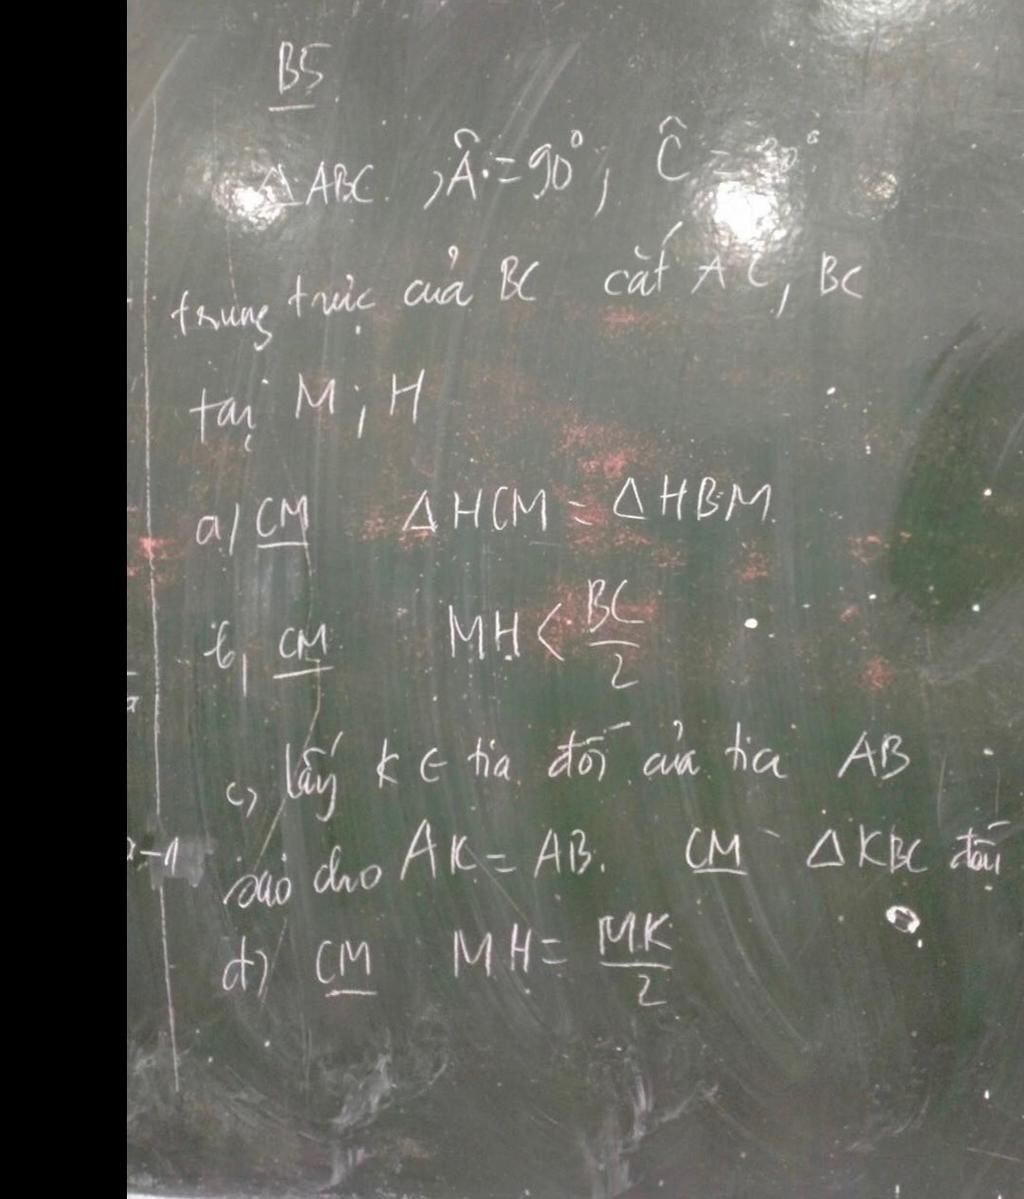 B5
△ABC, Â = 90°; Ĉ = 30°
trung trực của BC cắt AC, BC
tại M; H
a/ CM △HCM = △HBM
b, CM MH < BC/2
c, lấy K ∈ tia đối của tia AB
sao cho AK = AB. CM △KBC đều
d) CM MH = MK/2